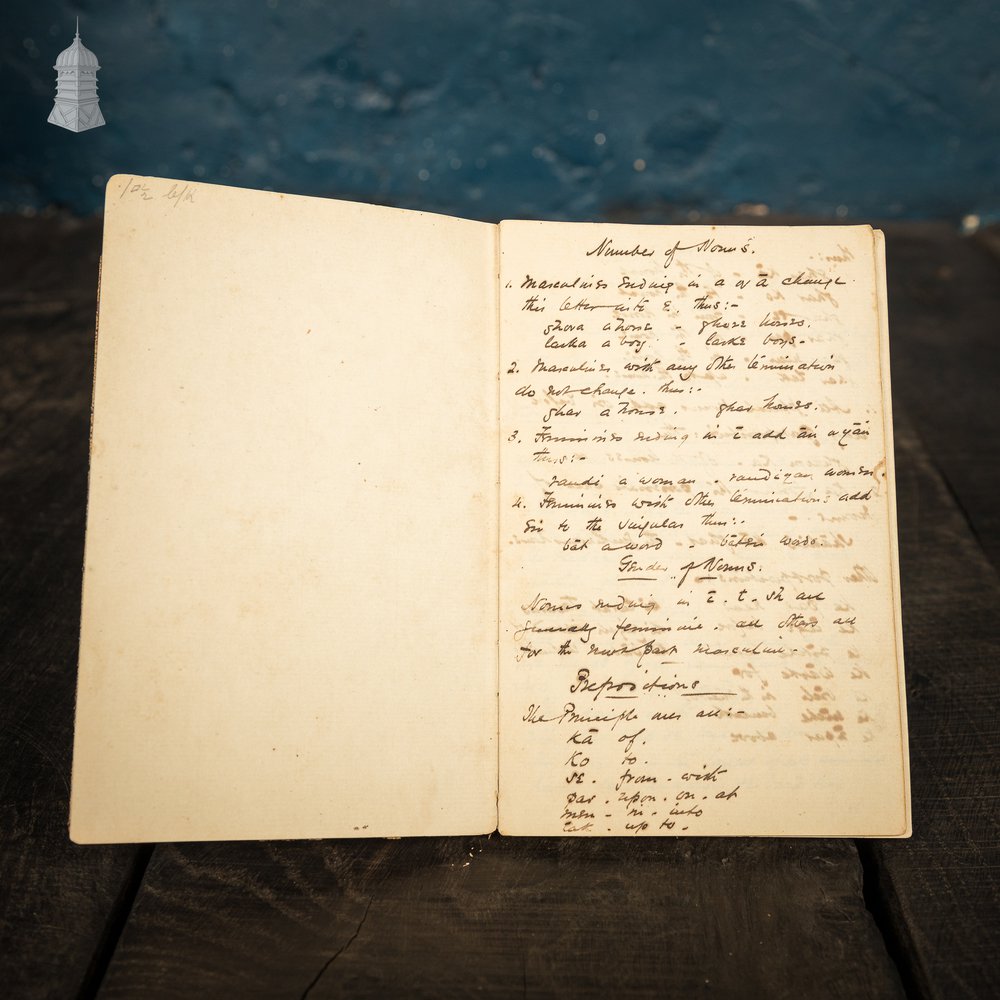 Number of Nouns.
1. Masculines ending in a or ā change
this letter into e, thus:-
ghora a horse - ghore horses.
larka a boy. - larke boys -
2. Masculines with any other termination
do not change. thus:-
ghar a house. ghar houses.
3. Feminines ending in ī add ān or yān
thus:-
randi a woman. randiyan women.
4. Feminines with other terminations add
en to the singular thus:-
bāt a word - bāten words.
Gender of Nouns.
Nouns ending in ī. t. sh are
generally feminine. all others are
for the most part masculine -
Prepositions
The Principle ones are:-
Kā of.
Ko to.
se. from - with
par. upon. on. at
men - in. into
tak. up to -